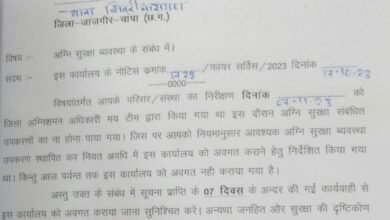 जिला-जांजगीर-चांपा (छ.ग.)
विषय:- अग्नि सुरक्षा व्यवस्था के संबंध में।
संदर्भ:- इस कार्यालय के नोटिस कमांक 1729 /फायर सर्विस/2023 दिनांक 17-10-23
----0000----
विषयांतर्गत आपके परिसर/संस्था का निरीक्षण दिनांक
को
जिला अग्निशमन अधिकारी मय टीम द्वारा किया गया था इस दौरान अग्नि सुरक्षा संबंधित
उपकरणों का ना होना पाया गया। जिस पर आपको नियमानुसार आवश्यक अग्नि सुरक्षा व्यवस्था
उपकरण स्थापित कर नियत अवधि में इस कार्यालय को अवगत कराने हेतु निर्देशित किया गया
था। किन्तु आज पर्यन्त तक इस कार्यालय को अवगत नही कराया गया है।
अस्तु उक्त के संबंध में सूचना प्राप्ति के 07 दिवस के अन्दर की गई कार्यवाही से
इस कार्यालय को अवगत कराया जाना सुनिश्चित करें। अन्यथा जनहित और सुरक्षा की दृष्टिकोण